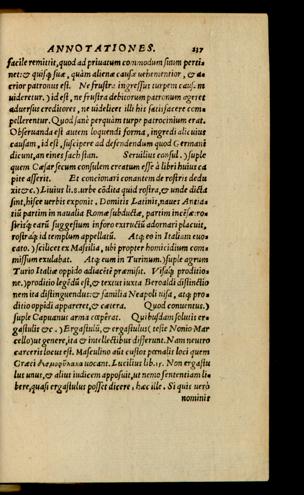 ANNOTATIONES. 237
facile remittit, quod ad priuatum commodum suum perti
net: & quisq; suæ, quàm alienæ causæ uehementior, & a=
crior patronus est. Ne frustra ingressus turpem causam
uideretur.) id est, ne frustra debitorum patronum ageret
aduersus creditores, ne uidelicet illi his satisfacere com=
pellerentur. Quod sanè perquàm turpe patrocinium erat.
Obseruanda est autem loquendi forma, ingredi alicuius
causam, id est, suscipere ad defendendum quod Germani
dicunt, an eines sach stan. Seruilius consul.) supple
quem Cæsar secum consulem creatum esse à libri huius ca
pite asserit. Et concionari conantem de rostris dedu
xit &c.) Liuius li. 8. urbe cõdita quod rostra, & unde dicta
sint, hisce uerbis exponit. Domitis Latinis, naues Antia=
tiũ partim in naualia Romæ subductæ, partim incẽsæ: ro=
strisq; earũ suggestum inforo extructũ adornari placuit,
rostraq; id templum appellatũ. Atq; eo in Italiam euo=
cato.) scilicet ex Massilia, ubi propter homicidium com=
missum exulabat. Atq; eum in Turinum.) supple agrum
Turio Italiæ oppido adiacitẽ præmisit. Visaq; proditio=
ne.) proditio legẽdũ est, & textus iuxta Beroaldi distinctio
nem ita distinguendus: & familia Neapoli uisa, atq; pro=
ditio oppidi apparere, & cætera. Quod conuentus.)
suple Capuanus arma cœperat. Quibusdam solutis er=
gastulis &c.) Ergastulũ, & ergastulus (teste Nonio Mar
cello) ut genere, ita & intellectibus differunt. Nam neutro
carceris locus est. Masculino aũt custos pœnalis loci quem
Græci δεσμοφύλακα uocant. Lucilius lib. 15. Non ergastu
lus unus, & alius iudicem apposuit, ut nemo sententiam li=
bere, quasi ergastulus posset dicere, hæc ille. Si quis uerò
nominis